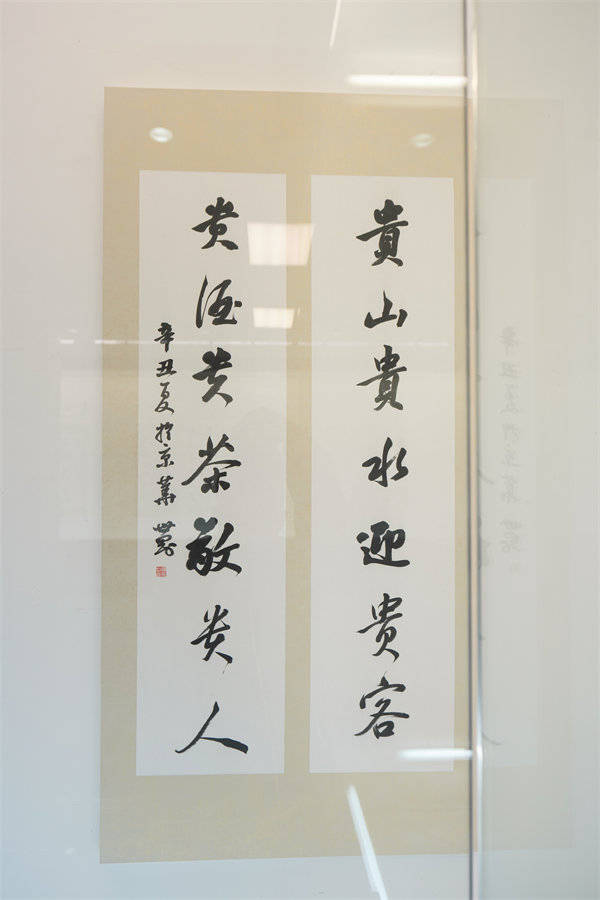 貴山貴水迎貴客
贵酒贵茶敬贵人
辛丑夏於京華 世